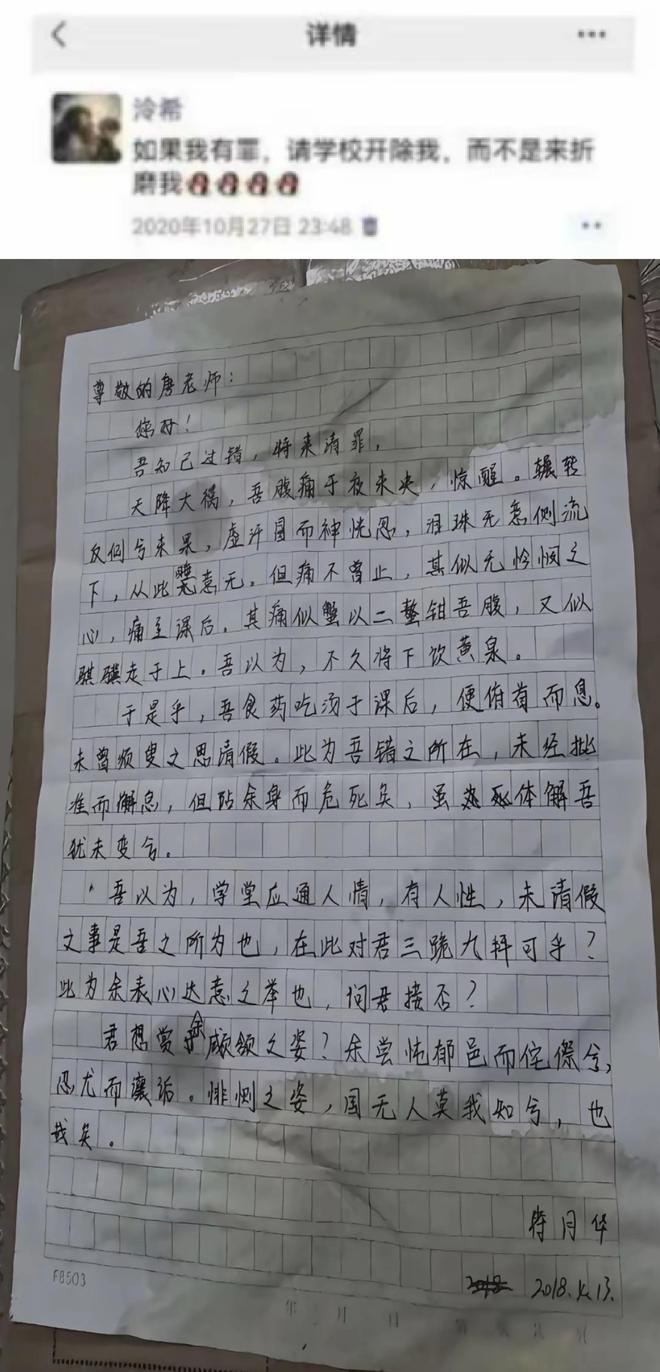 详情
泠希
如果我有罪，请学校开除我，而不是来折
磨我
2020年10月27日 23:48
尊敬的唐老师：
您好！
吾知己过错，将来清罪，
天降大祸，吾腹痛于夜未央，惊醒。辗转
反侧兮未果，虚汗冒而神恍忽，泪珠无意侧流
下，从此意无。但痛不曾止，其似无怜悯之
心，痛至课后，其痛似蟹以二螯钳吾腹，又似
骐骥走于上。吾以为，不久将下饮黄泉。
于是乎，吾食药吃汤于课后，便俯首而息。
未曾须臾之思请假。此为吾错之所在，未经批
准而懈怠，但阽余身而危死矣，虽死体解吾
犹未变兮。
吾以为，学堂应通人情，有人性，未请假
之事是吾之所为也，在此对君三跪九拜可乎？
此为余表心达意之举也，问君接否？
君想赏余顑颔之姿？余尝忳郁邑而侘傺兮，
忍尤而攘诟。悱恻之姿，国无人莫我知兮，也
哉矣。
月华
2018 2018.4.13.
F8503
年 月 日 第 页